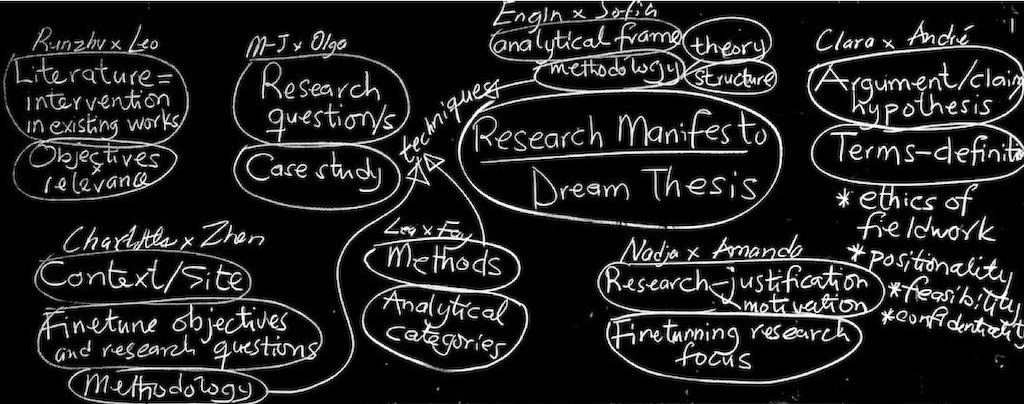 Runzhu x Leo
Literature =
intervention
in existing works
Objectives
x
relevance
M-J x Olga
Research
question/s
Case study
techniques
Engin x Sofia
analytical frame
theory
methodology
structure
Research Manifesto
Dream Thesis
Clara x André
Argument/claim
hypothesis
Terms-definitio
* ethics of
fieldwork
* positionality
* feasibility
* confidentiality
Charlotta x Zhen
Context/Site
Finetune objectives
and research questions
Methodology
Lea x Fay
Methods
Analytical
categories
Nadja x Amanda
Research-justification
motivation
Finetunning research
focus